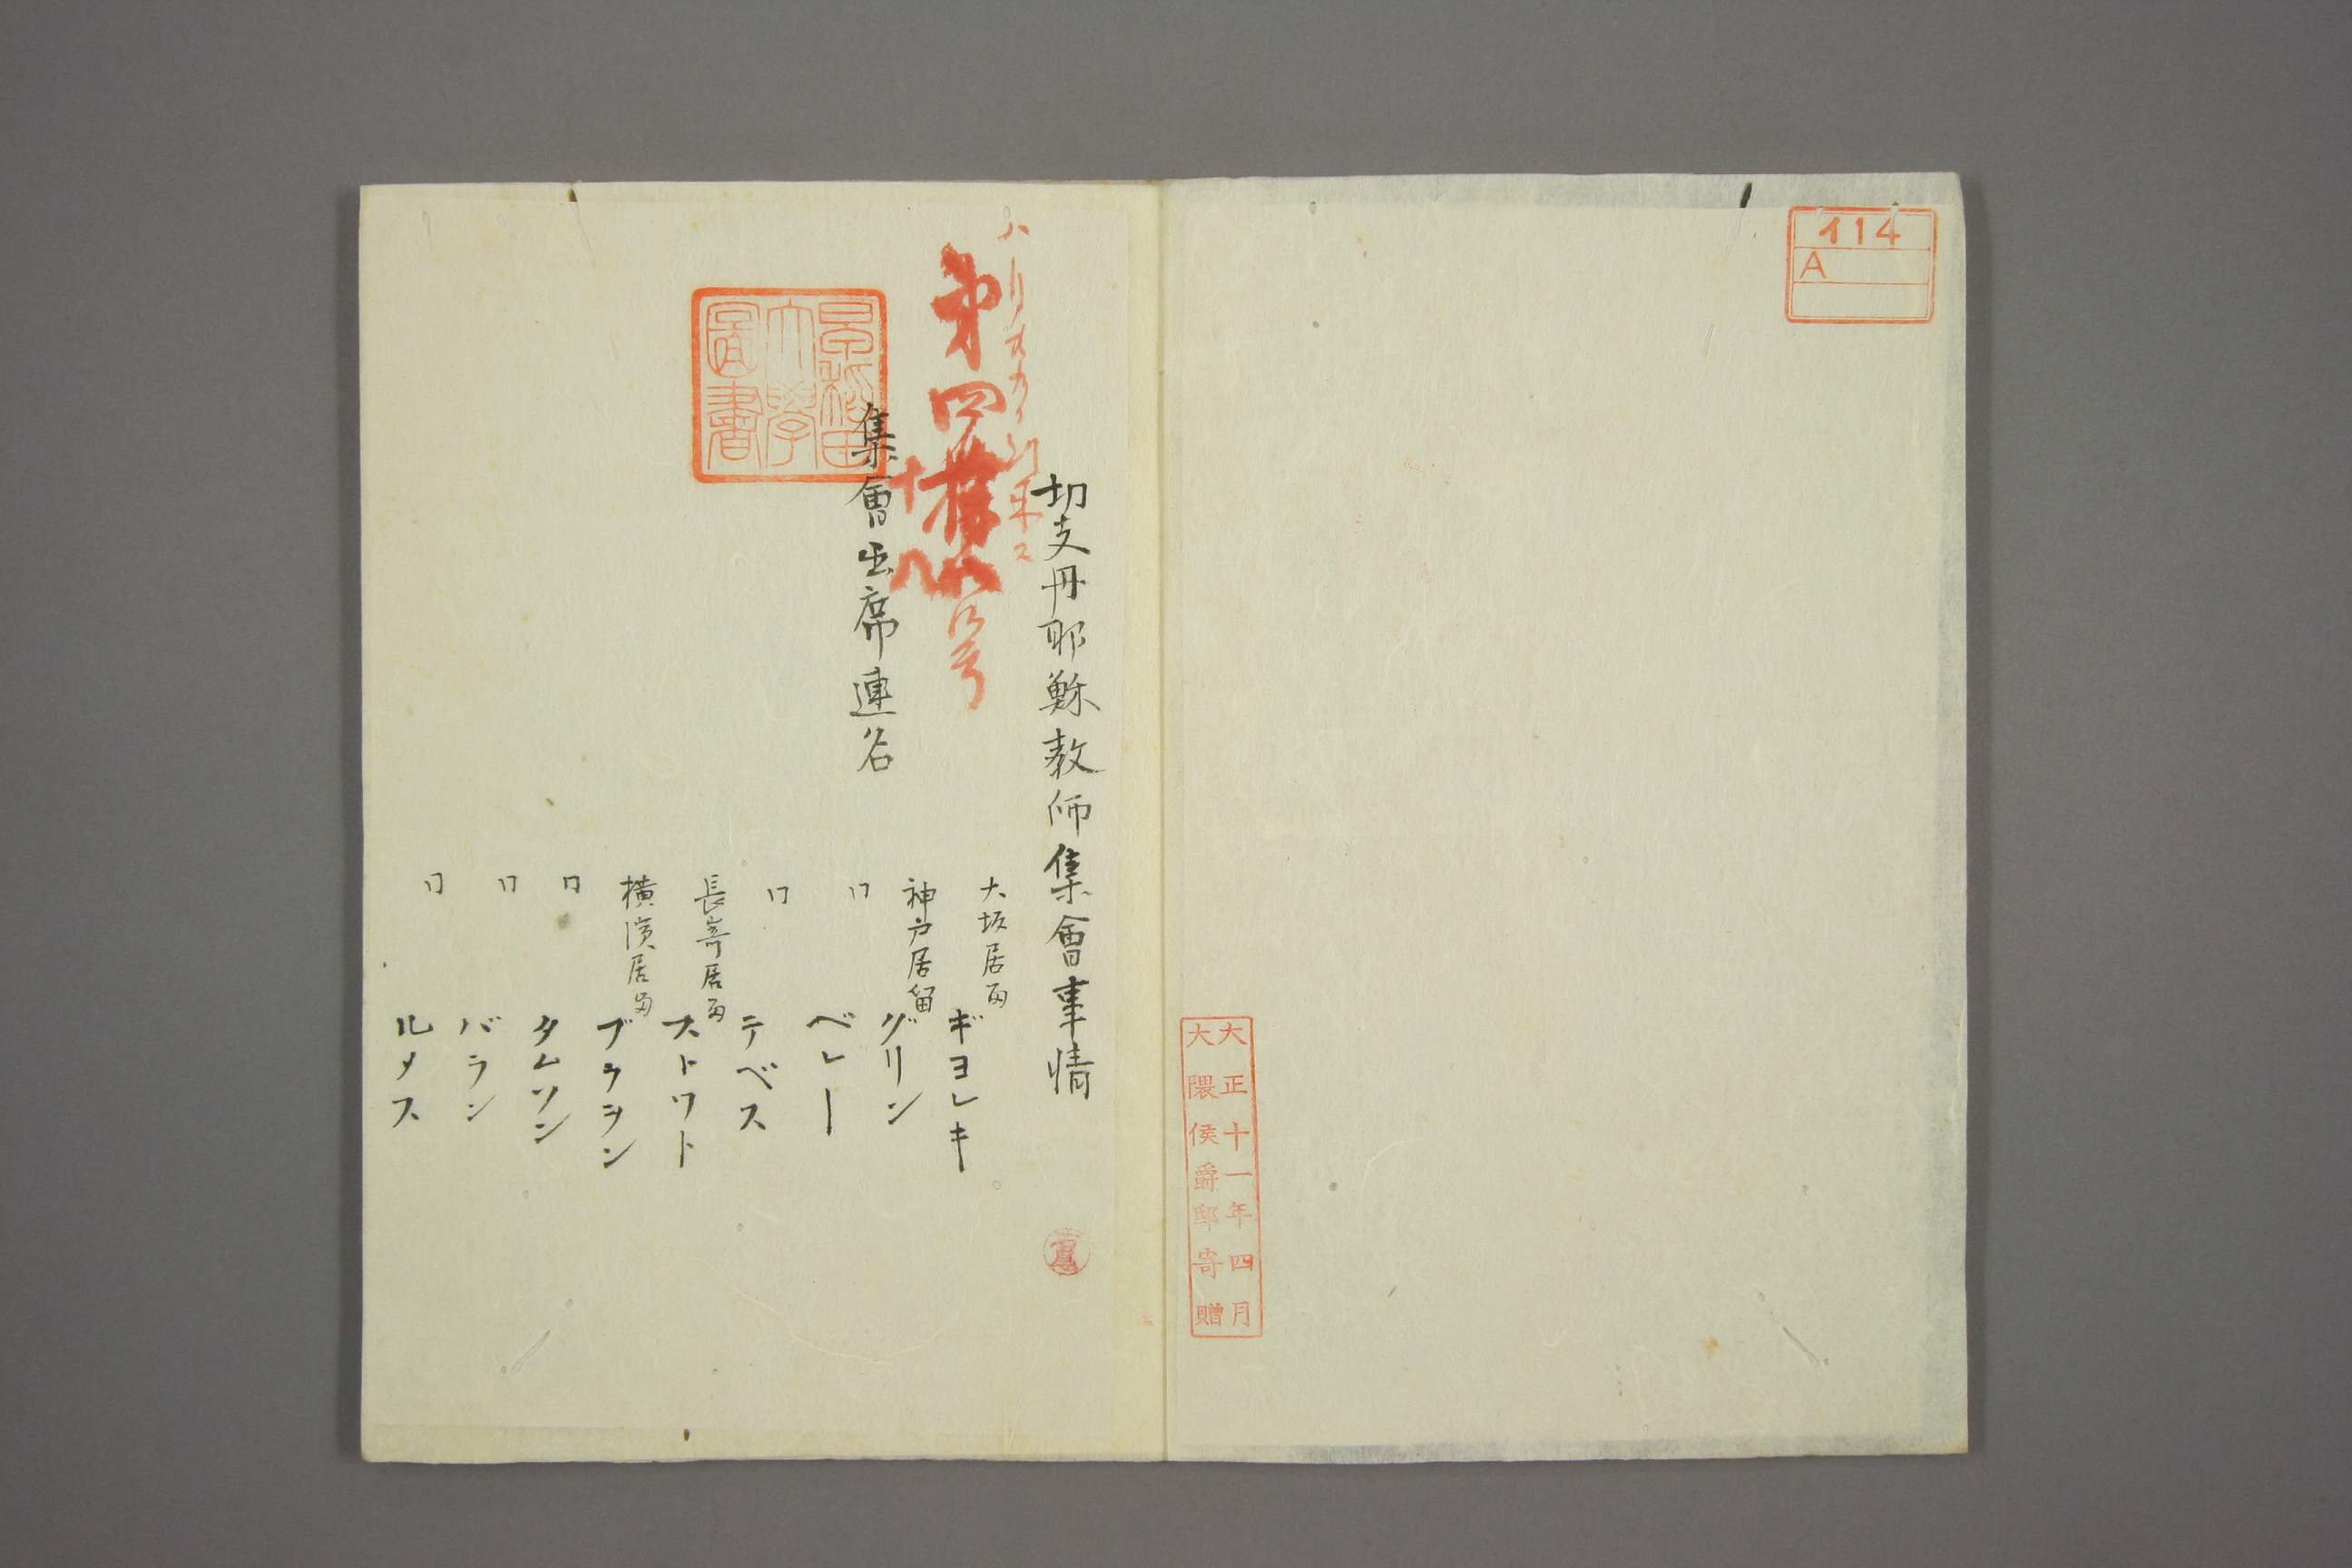 イ14
A
大正十一年四月
大隈侯爵邸寄贈
切支丹耶穌教師集會事情
第四
十八
号
早稲田大學圖書
集會出席連名
大坂居留 ギヨレキ
神戸居留 グリン
〃 ベレー
〃 テベス
長崎居留 ストウト
横濱居留 ブラヲン
〃 タムソン
〃 バラン
〃 ルメス